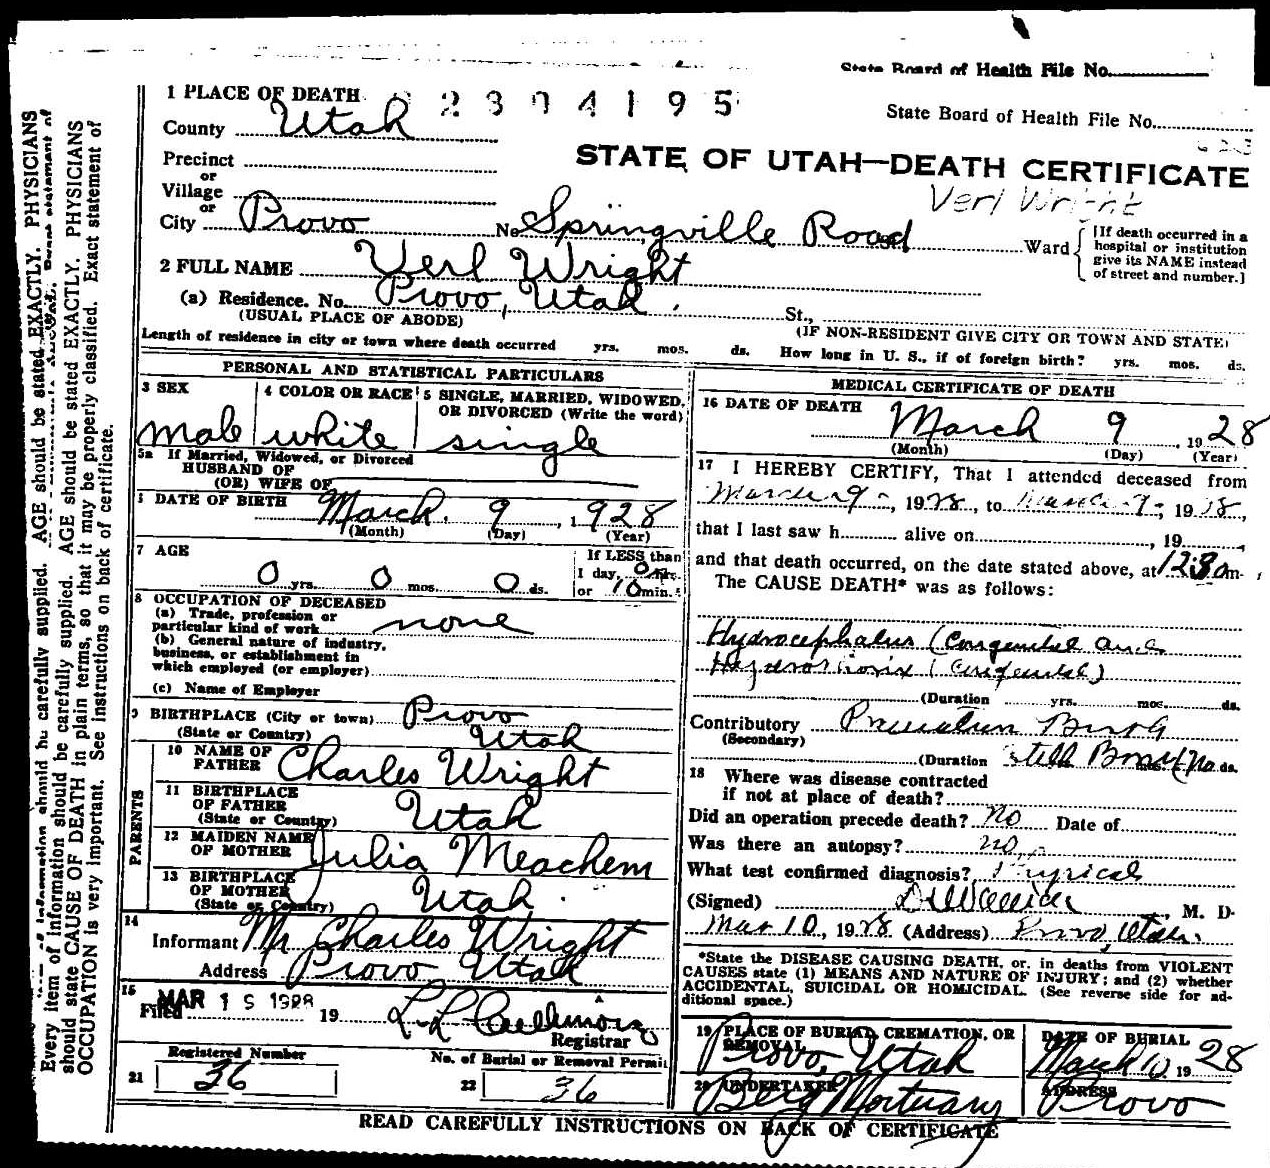 State Board of Health File No.
1 PLACE OF DEATH 2 3 0 4 1 9 5
State Board of Health File No.
County Utah
STATE OF UTAH—DEATH CERTIFICATE
Precinct
or
Village
Verl Wright
or
City Provo No Springville Road Ward
[If death occurred in a
hospital or institution
give its NAME instead
of street and number.]
2 FULL NAME Verl Wright
(a) Residence. No. Provo, Utah. St.,
(USUAL PLACE OF ABODE) (IF NON-RESIDENT GIVE CITY OR TOWN AND STATE)
Length of residence in city or town where death occurred yrs. mos. ds. How long in U. S., if of foreign birth? yrs. mos. ds.
PERSONAL AND STATISTICAL PARTICULARS
3 SEX
male
4 COLOR OR RACE
white
5 SINGLE, MARRIED, WIDOWED,
OR DIVORCED (Write the word)
single
5a If Married, Widowed, or Divorced
HUSBAND OF
(OR) WIFE OF
DATE OF BIRTH March 9, 1928
(Month) (Day) (Year)
7 AGE
0 yrs. 0 mos. 0 ds.
If LESS than
1 day, 0 hrs.
or 10 min.
8 OCCUPATION OF DECEASED
(a) Trade, profession or
particular kind of work none
(b) General nature of industry,
business, or establishment in
which employed (or employer)
(c) Name of Employer
9 BIRTHPLACE (City or town) Provo
(State or Country) Utah
PARENTS
10 NAME OF
FATHER Charles Wright
11 BIRTHPLACE
OF FATHER
(State or Country) Utah
12 MAIDEN NAME
OF MOTHER Julia Meachem
13 BIRTHPLACE
OF MOTHER
(State or Country) Utah.
14
Informant Mr Charles Wright
Address Provo Utah
15
Filed MAR 1 1928 19
Registrar
Registered Number
21 36
No. of Burial or Removal Permit
22 36
MEDICAL CERTIFICATE OF DEATH
16 DATE OF DEATH
March 9, 1928
(Month) (Day) (Year)
17 I HEREBY CERTIFY, That I attended deceased from
March 9, 1928, to March 9, 1928,
that I last saw h alive on , 19 ,
and that death occurred, on the date stated above, at 12:30 m.
The CAUSE DEATH* was as follows:
Hydrocephalus (Congenital and
(Congenital)
(Duration yrs. mos. ds.
Contributory Premature Birth
(Secondary)
(Duration Still Born mos. ds.
18 Where was disease contracted
if not at place of death?
Did an operation precede death? no Date of
Was there an autopsy? no
What test confirmed diagnosis? Physical
(Signed) , M. D.
Mar 10, 1928 (Address) Provo, Utah.
*State the DISEASE CAUSING DEATH, or, in deaths from VIOLENT
CAUSES state (1) MEANS AND NATURE OF INJURY; and (2) whether
ACCIDENTAL, SUICIDAL OR HOMICIDAL. (See reverse side for ad-
ditional space.)
19 PLACE OF BURIAL, CREMATION, OR
REMOVAL
Provo, Utah
DATE OF BURIAL
March 10, 1928
20 UNDERTAKER
Berg Mortuary
ADDRESS
Provo
READ CAREFULLY INSTRUCTIONS ON BACK OF CERTIFICATE
Every item of information should be carefully supplied. AGE should be stated EXACTLY. PHYSICIANS
should state CAUSE OF DEATH in plain terms, so that it may be properly classified. Exact statement of
OCCUPATION is very important. See instructions on back of certificate.